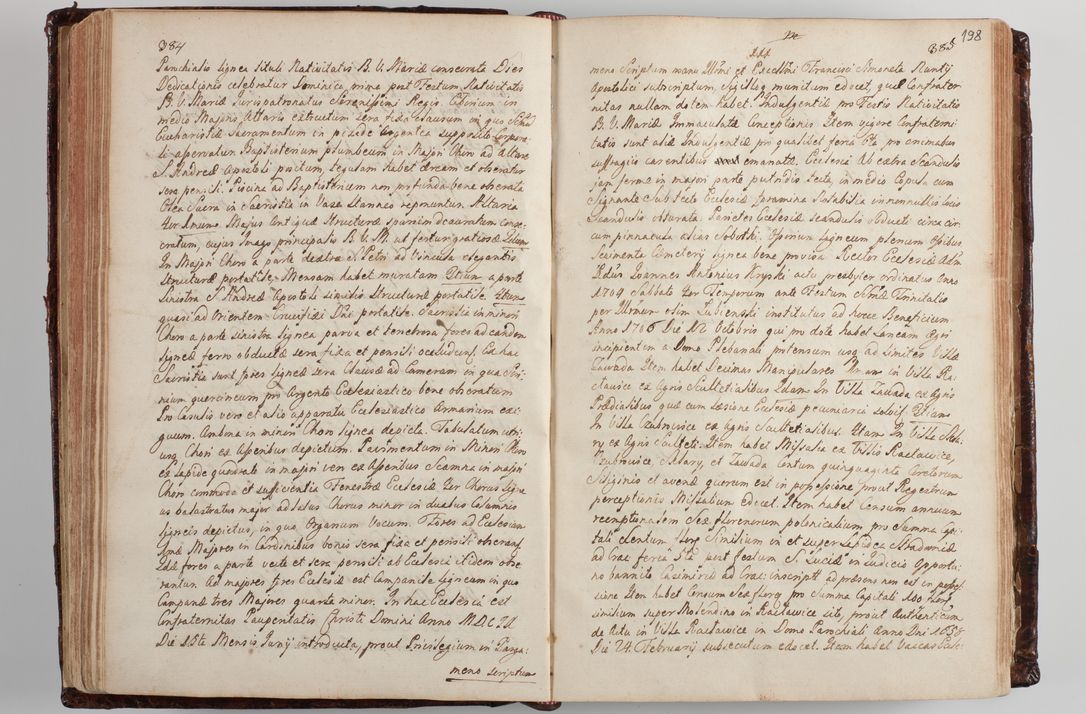 384
Parchialis lignea tituli Nativitatis B. V. Mariæ consecrata Dies
Dedicationis celebratur Dominica prima post Festum Nativitatis
B. V. Mariæ Jurispatronatus Serenissimi Regis. Ciborium in
medio Majoris Altaris extructum sera fixa clausum in quo
Eucharistiæ Sacramentum in pixide argentea supposito Corpora
li asservatur. Baptisterium plumbeum in Majori Choro ad Altare
S. Andreæ Apostoli positum, tegulam habet æream et obseratur
sera pensili. Piscina ad Baptisterium non profunda bene obserata
Olea Sacra in Sacristia in Vasa Stannea reponuntur. Altaria
Majus Antiquæ Structuræ sparsim deauratum conse
cratum, cujus Imago principalis B. V. M. ut fertur gratiosa
In Majori Choro a parte dextra S. Petri ad Vincula elegantis
Structuræ portatile. Mensam habet muratam. a parte
Sinistra S. Andreæ Apostoli similis Structuræ portatile.
quasi ad Orientem Crucifixi Dni portatile. Sacristia in minori
Choro a parte sinistra lignea parva et tenebrosa fores ad eandem
ligneæ ferro obductæ sera fixa et pensili occluduntur. Ex hac
Sacristia sunt fores ligneæ sera clausæ ad Cameram in qua Scri
nium quercineum pro Argento Ecclesiastico bene obseratum
Pro Casulis vero et alio apparatu Ecclesiastico Armarium exi
guum. Ambona in minori Choro lignea depicta. Tabulatum utri
usq Chori ex Asseribus depictum. Pavimentum in Minori Choro
ex lapide quadrato in majori vero ex Asseribus Scamna in majori
Choro commoda et sufficientia Fenestræ Ecclesiæ Chorus ligne
us balastratus major ad latus Chorus minor in duabus Columnis
ligneis depictus, in quo Organum Vacuum. Fores ad Ecclesiam
Majores in Cardinibus bonis sera fixa et pensili obserant
fores a parte vecte et sera pensili ab Ecclesia itidem obse
rantur. Ad majores fores Ecclesiæ est Campanile ligneum in quo
Campanæ tres Majores quarta minor. In hac Ecclesia est
Confraternitas Paupertatis Christi Domini Anno
Die 15ta Mensis Junij introducta, prout Privilegium in Parga:
meno scriptum
198
385
meno Scriptum manu Illmi et Excellmi Francisci Simonetta Nuntij
Apostolici subscriptum, Sigilloq munitum edocet, quæ Confrater
nitas nullam dotem habet. Indulgentiæ pro Festis Nativitatis
B. V. Mariæ Immaculatæ Conceptionis Item vigore Confraterni
tatis sunt aliæ Indulgentiæ pro qualibet feria pro animabus
suffragio carentibus emanatæ. Ecclesia Ab extra Scandulis
jam ferme in majori parte putridis tecta, in medio Copula cum
Signante Sub tecto Ecclesiæ foramina in nonnullis locis
Scandulis obturata. Parietes Ecclesiæ Scandulis obducti circa cir
cum pinnacula alias Sobotki. Ossarium ligneum plenum Ossibus
Sepimenta Cemeterij lignea bene provisa. Rector Ecclesiæ Adm
Rdus Joannes Antonius Kryski actu presbyter ordinatus Anno
1704 Sabbato Temporum ante Festum Trinitatis
per Illmum olim Lubienski institutus ad hocce Beneficium
Anno 1706 Die 12 Octobris qui pro dote habet Laneam Agri
incipientem a Domo Plebanali protensum usq ad limites Villæ
Zawada Item habet Decimas Manipulares in Villa Ra
clavice ex Agris Scultetialibus In Villa Zawada ex Agris
Prædialibus quæ cum læsione Ecclesiæ pecuniarie solvit.
In Villa Zubrowice ex Agris Scultetialibus. In Villa
ry ex Agris Sculteti. Item habet Missalia ex Villis Raclawice,
Zubrowice, Stary, et Zawada Centum quinquaginta Coretorum
Siliginis et avenæ quorum est in possessione prout Regestrum
perceptionis Missalium edocet. Item habet Censum annuum
reemptionalem Sex florenorum polonicalium pro Summa Capi
tali Centum similium in et super lapidea Stradomiæ
ad Crac feria 5ta post Festum S. Luciæ in Judicio Opportu
no bannito Casimiriæ ad Crac: inscripti ad præsens non est in posses
sione Item habet Censum Sex pro Summa Capitali 100
similium super Molendino in Raclawice sito, prout Authenticum
de Actu in Villa Raclawice in Domo Parchiali Anno Dni 1658
Die 24 February subsecutum edocet. Item habet Vaccas